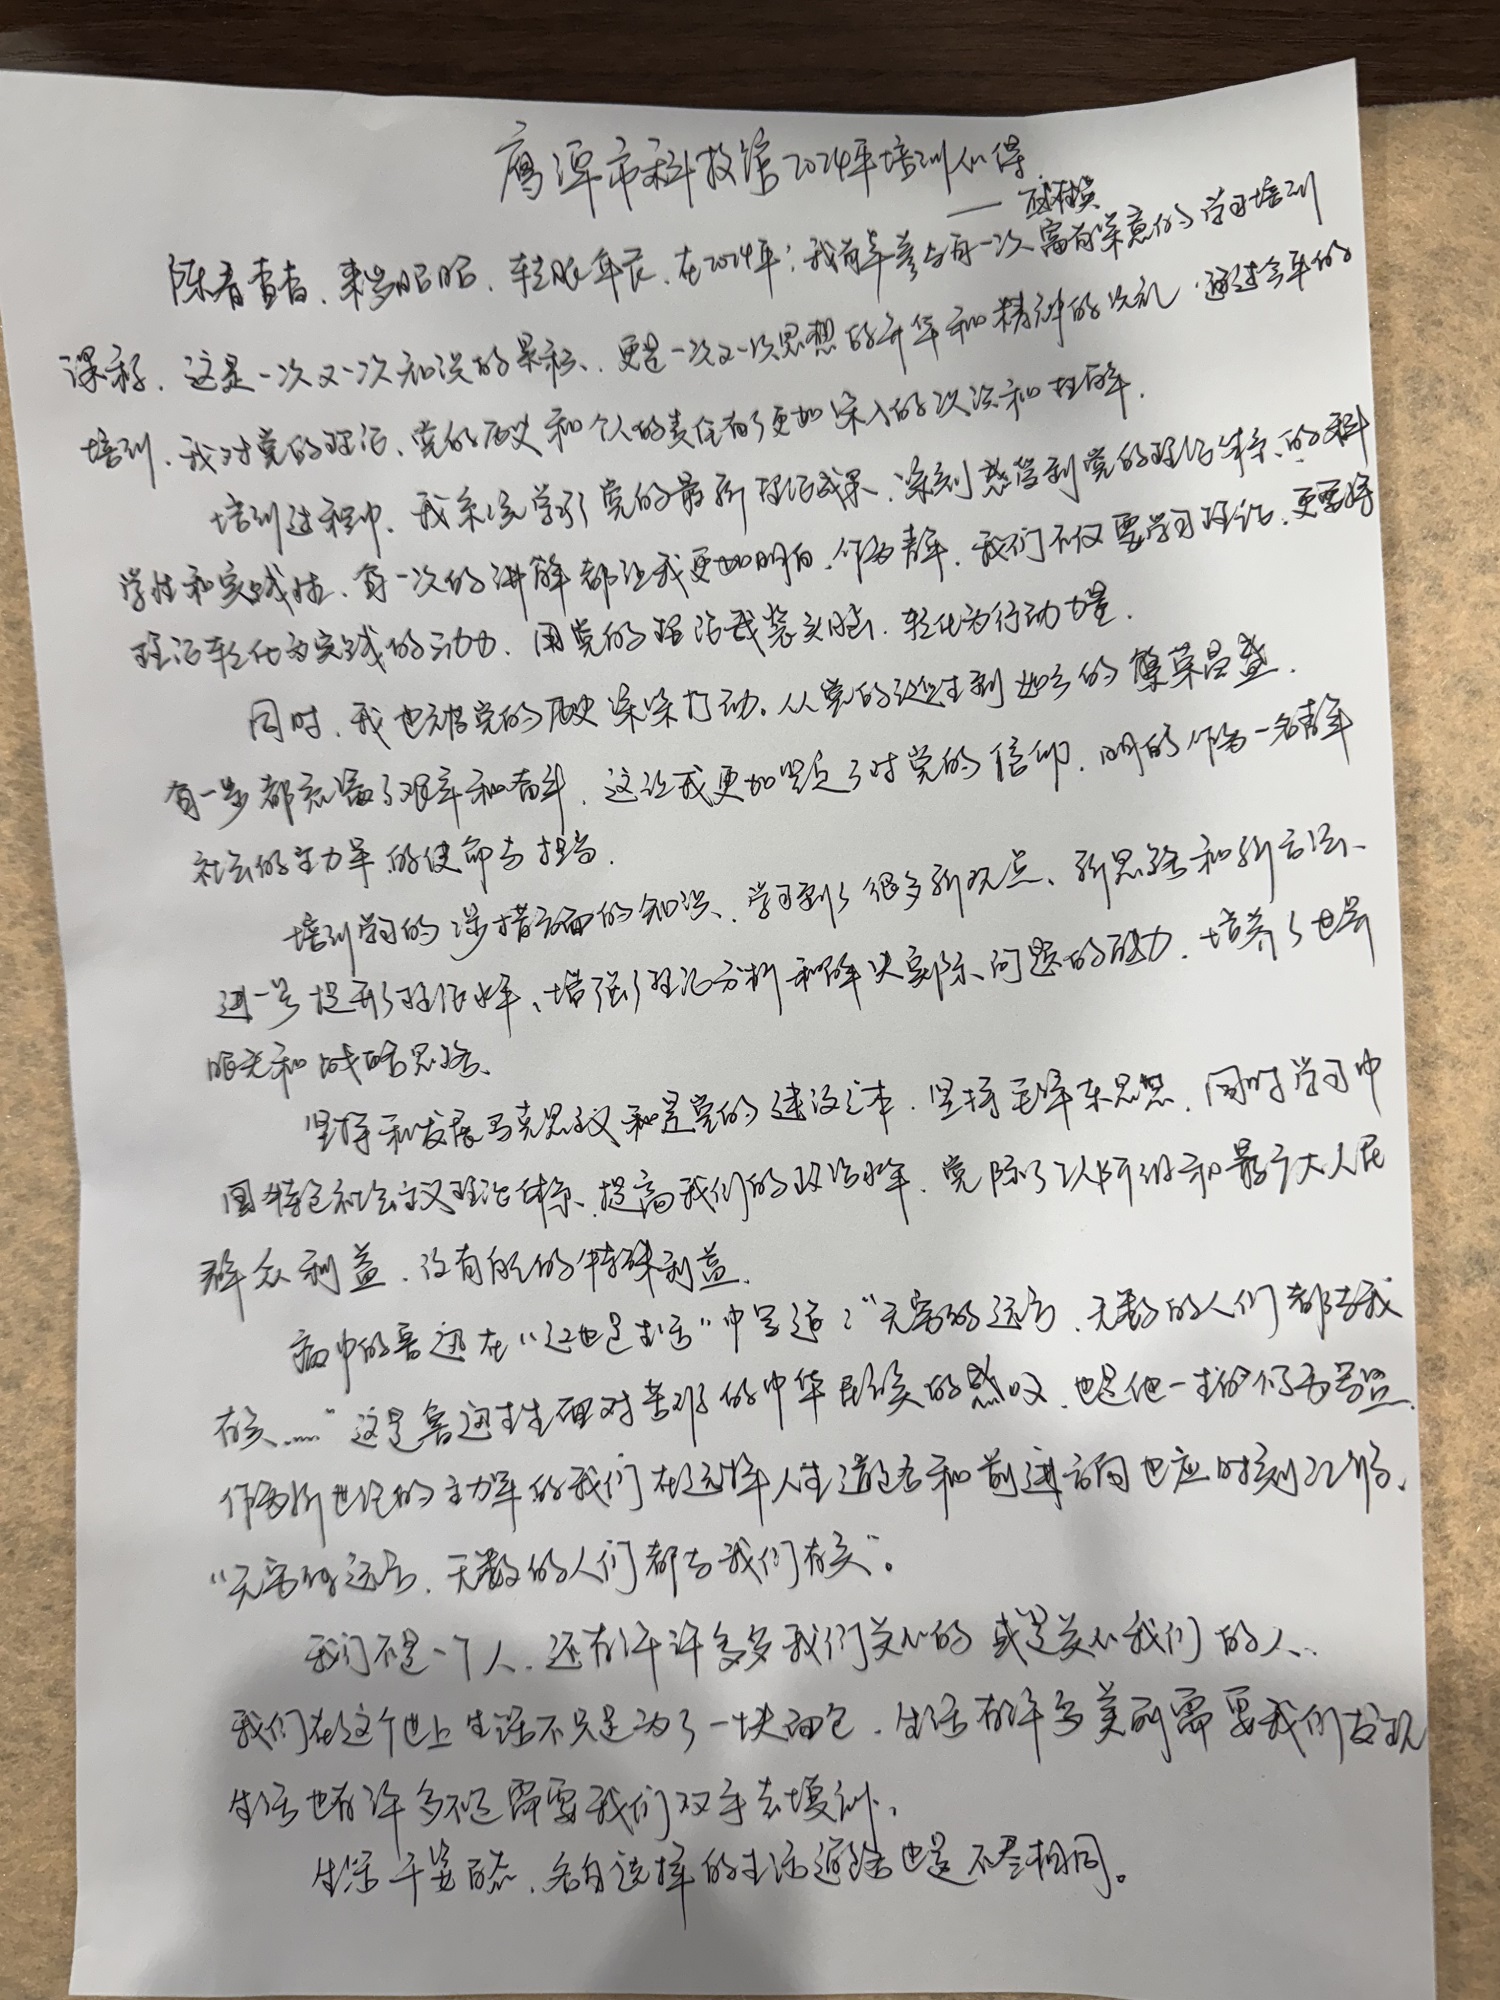 鹰潭市科技馆2024年培训心得
陈春杳杳、来岁昭昭、在2024年,我有幸参与每一次富有深意的学习培训
课程,这是一次又一次知识的累积、更是一次又一次思想的升华和精神的洗礼,通过今年的
培训、我对党的理论、党的历史和个人的责任有了更加深入的认识和理解.
培训过程中、我系统学习了党的最新理论成果、深刻感受到党的理论体系的科
学性和实践性、每一次的讲解都让我更加明白,作为青年,我们不仅要学习理论、更要将
理论转化为实践的动力、用党的理论武装头脑、转化为行动力量.
同时、我也被党的历史深深打动。从党的诞生到如今的繁荣昌盛.
每一步都充满了艰辛和奋斗,这让我更加坚定了对党的信仰,明的作为一名青年
社会的主力军的使命与担当.
培训学习的涉猎方面的知识、学习到了很多新观点、新思路和新方法、
进一步提升了理论水平、增强了理论分析和解决实际问题的能力,培养了世界
眼光和战略思路、
坚持和发展马克思主义和是党的建设之本,坚持毛泽东思想,同时学习中
国特色社会主义理论体系、提高我们的政治水平,党除了以所谓和最广大人民
群众利益、没有自己的特殊利益.
病中的鲁迅在“这也是生活”中写道:“无穷的远方、无数的人们都与我
有关……”这是鲁迅先生面对苦难的中华民族的感叹,也是他一生的
作为新世纪的主力军的我们在选择人生道路和前进方向也应时刻记得、
“无穷的远方、无数的人们都与我们有关”。
我们不是一个人,还有许许多多我们关心的或是关心我们的人.
我们在这个世上生活不只是为了一块面包,生活有许多美丽需要我们发现
生活也有许多不足需要我们双手去填
生活千姿百态,各自选择的生活道路也是不尽相同。